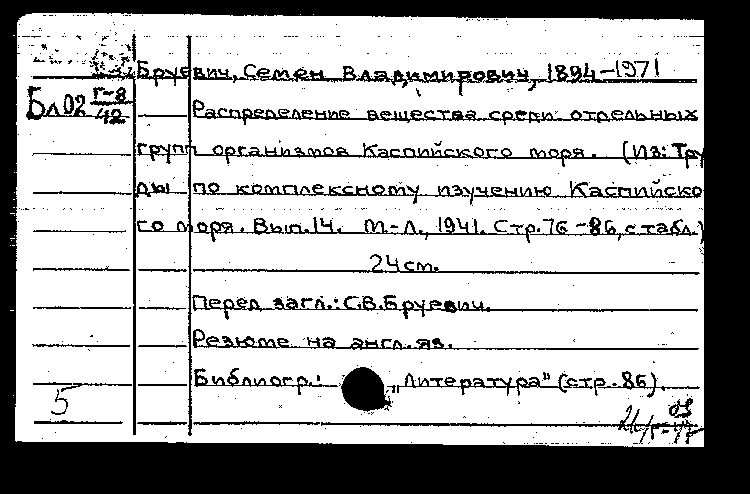 Бруевич, Семен Владимирович, 1894-1971
Бл02 г-8/42
Распределение вещества среди отдельных
групп организмов Каспийского моря. (Из: Тру
ды по комплексному изучению Каспийско
го моря. Вып.14. М-Л., 1941. Стр.76-86, с табл.)
24 см.
Перед загл.: С.В.Бруевич.
Резюме на англ.яз.
Библиогр.: „Литература" (стр.86).
5